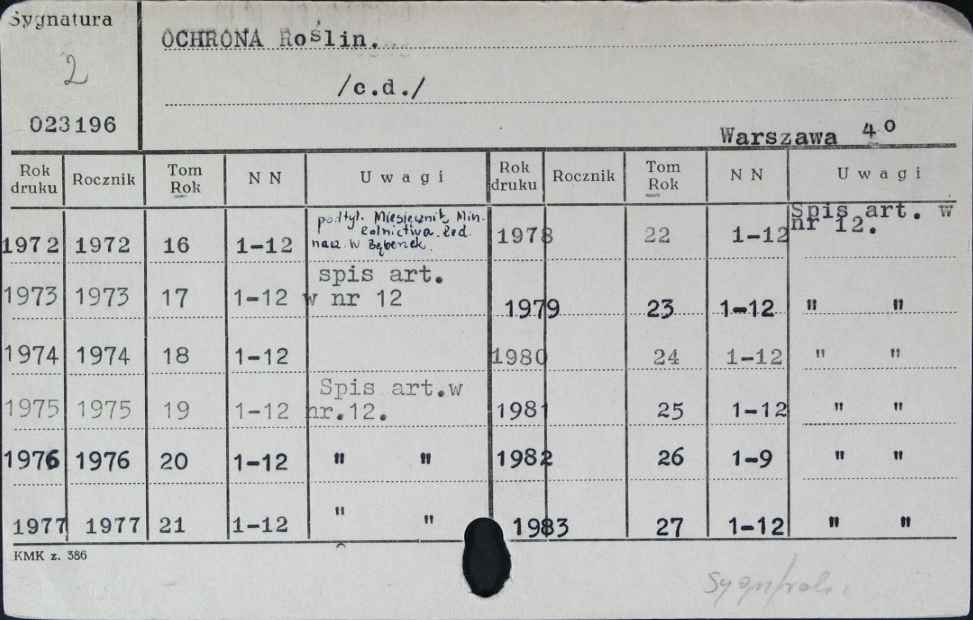 Sygnatura
2
023196
OCHRONA Roślin.
/c.d./
Warszawa 4°
Rok druku Rocznik Tom Rok NN Uwagi Rok druku Rocznik Tom Rok NN Uwagi
1972 1972 16 1-12 podtyt. Miesięcznik Min. Rolnictwa. Red. nacz. W 1978 22 1-12 Spis art. w nr 12.
1973 1973 17 1-12 spis art. w nr 12 1979 23 1-12 " "
1974 1974 18 1-12 1980 24 1-12 " "
1975 1975 19 1-12 Spis art.w nr.12. 1981 25 1-12 " "
1976 1976 20 1-12 " " 1982 26 1-9 " "
1977 1977 21 1-12 " " 1983 27 1-12 " "
KMK z. 386